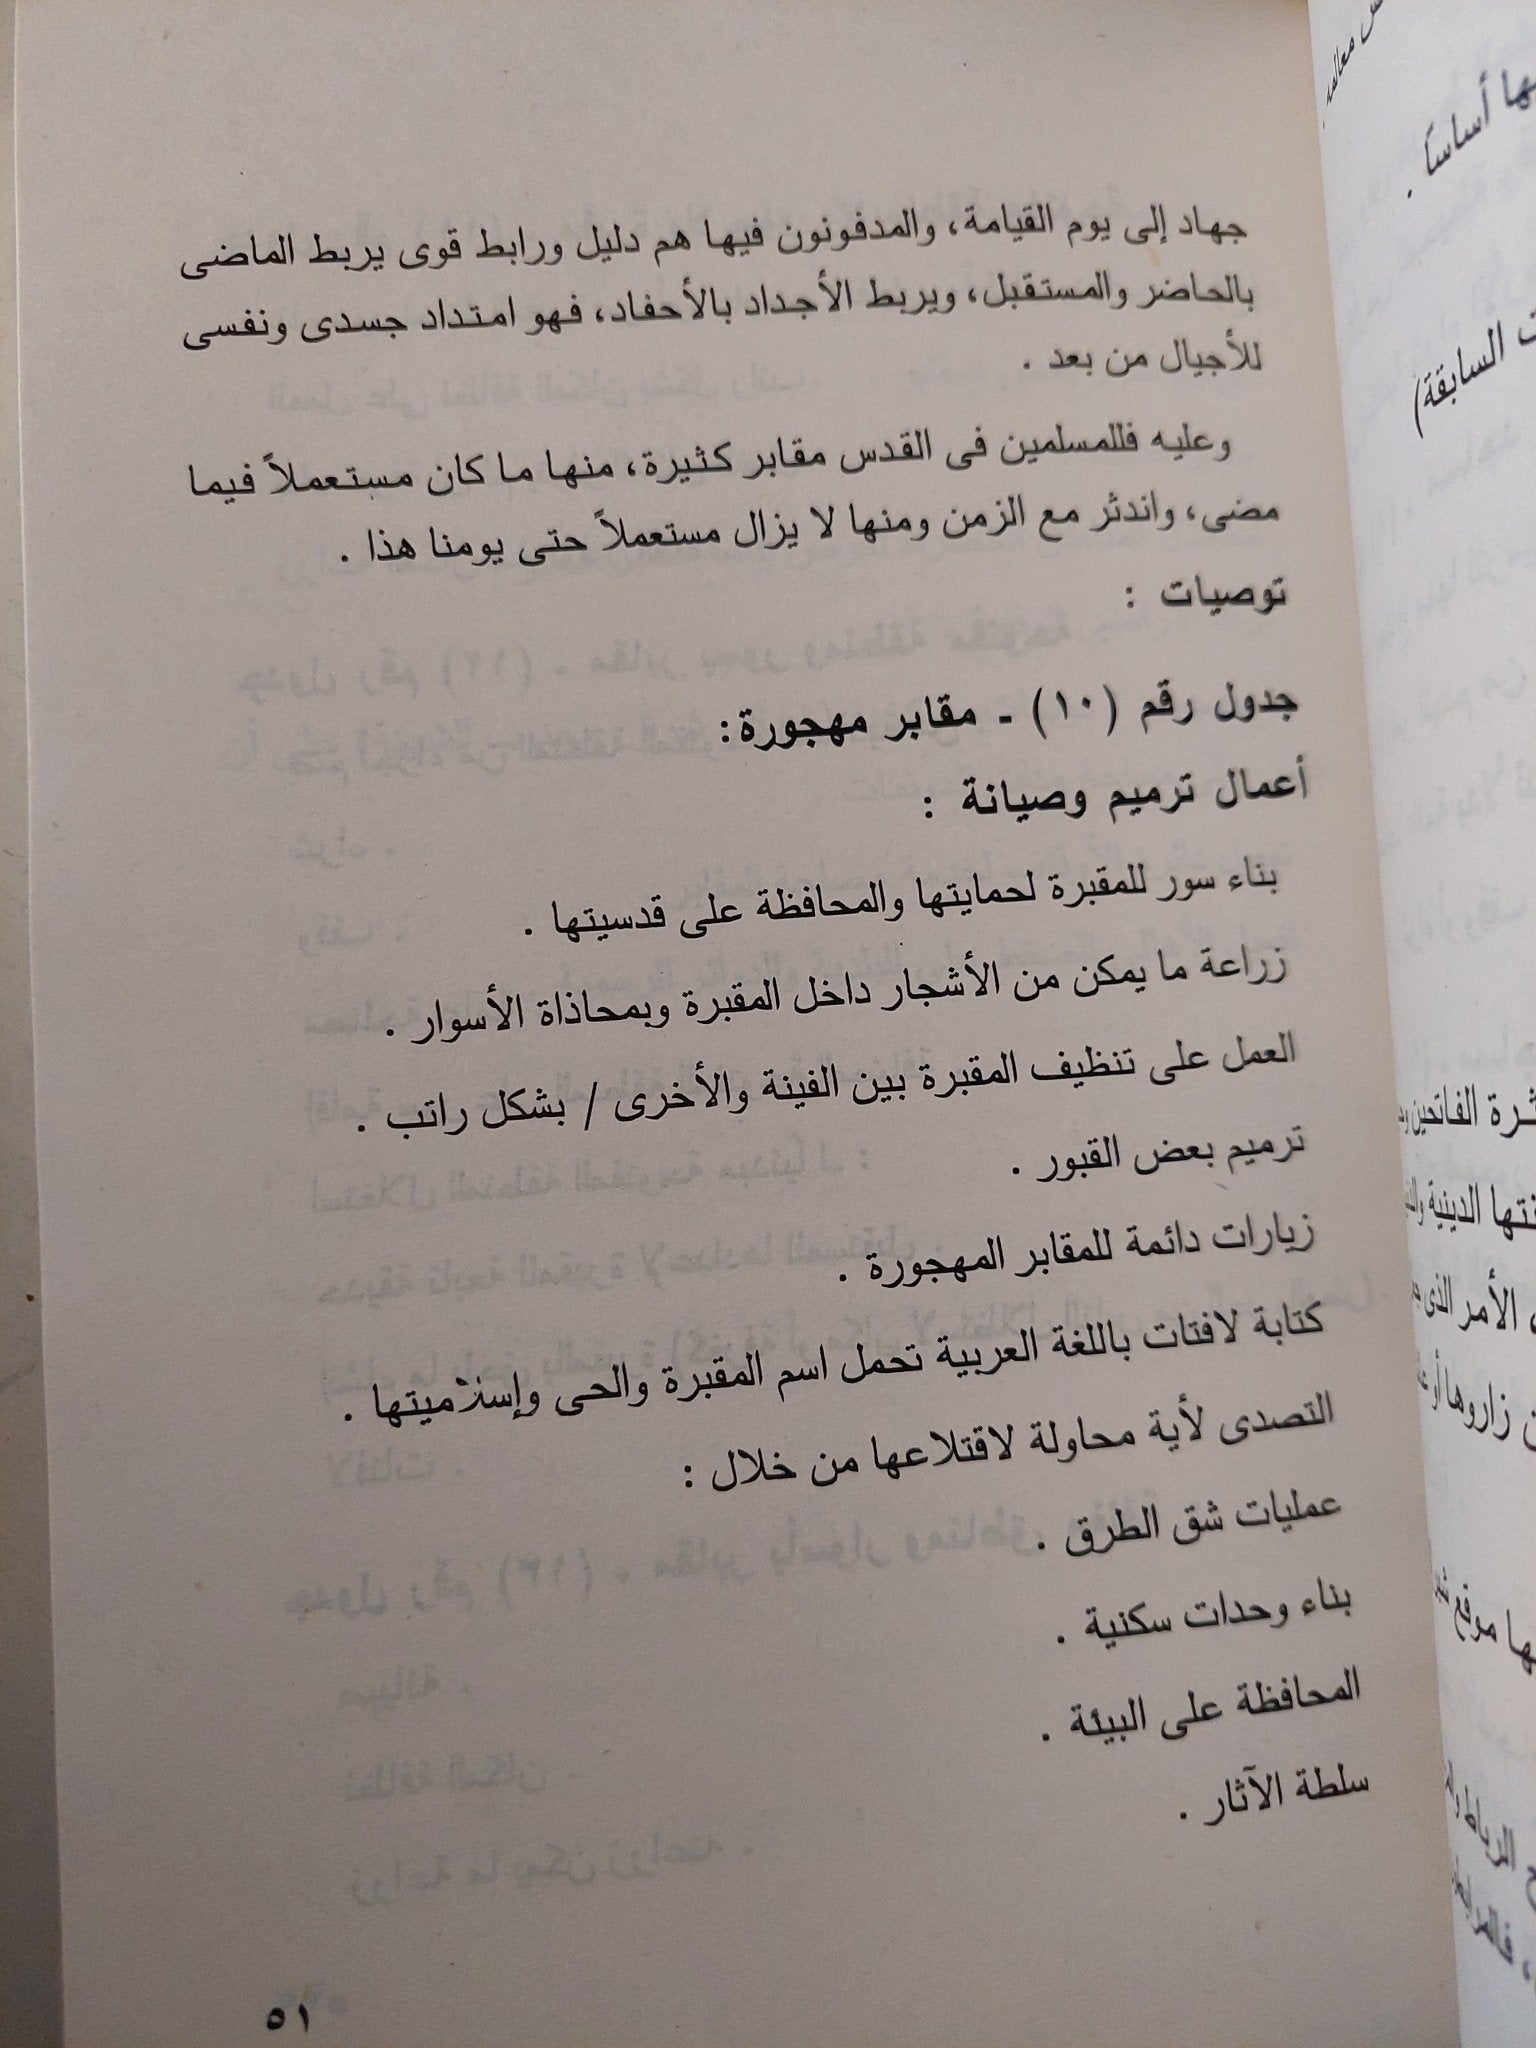 جهاد إلى يوم القيامة، والمدفونون فيها هم دليل ورابط قوى يربط الماضى
بالحاضر والمستقبل، ويربط الأجداد بالأحفاد، فهو امتداد جسدى ونفسى
للأجيال من بعد .
وعليه فللمسلمين فى القدس مقابر كثيرة، منها ما كان مستعملاً فيما
مضى، واندثر مع الزمن ومنها لا يزال مستعملاً حتى يومنا هذا .
توصيات :
جدول رقم (١٠) - مقابر مهجورة:
أعمال ترميم وصيانة :
بناء سور للمقبرة لحمايتها والمحافظة على قدسيتها .
زراعة ما يمكن من الأشجار داخل المقبرة وبمحاذاة الأسوار .
العمل على تنظيف المقبرة بين الفينة والأخرى / بشكل راتب .
ترميم بعض القبور .
زيارات دائمة للمقابر المهجورة .
كتابة لافتات باللغة العربية تحمل اسم المقبرة والحى وإسلاميتها .
التصدى لأية محاولة لاقتلاعها من خلال :
عمليات شق الطرق .
بناء وحدات سكنية .
المحافظة على البيئة .
سلطة الآثار .
٥١
أساساً .
السابقة)
الفاتحين
الدينية
، الأمر الذى
زاروها أو
موقع